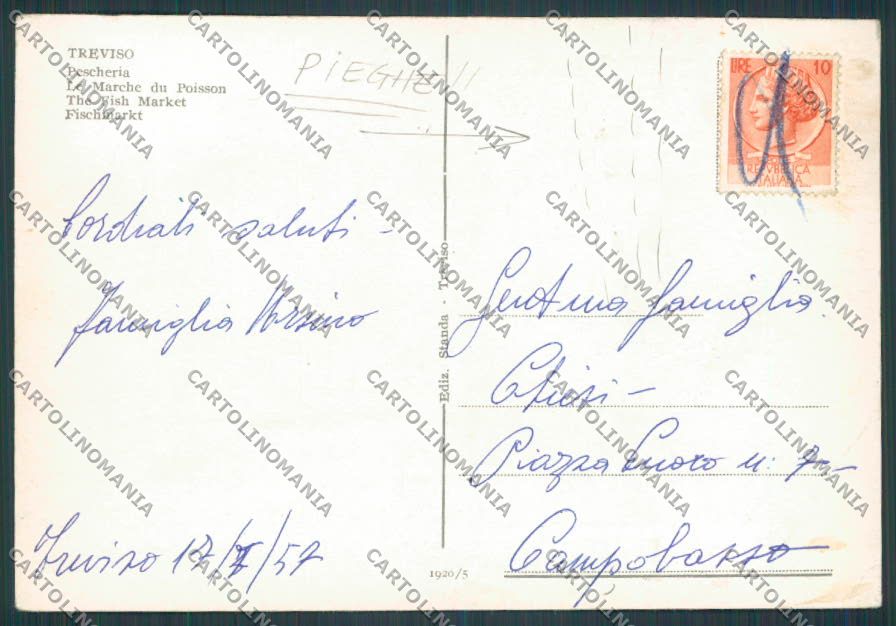 TREVISO
Pescheria
Le Marche du Poisson
The Fish Market
Fischmarkt
PIEGHE!!
LIRE 10
REPVBBLICA
ITALIANA
Cordiali saluti -
Famiglia Orsino
Treviso 17/ /57
Ediz. Standa - Treviso
1920/5
Gent.ma famiglia
Piazza n: 7-
Campobasso
CARTOLINOMANIA